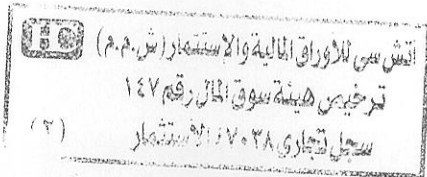 HC
اتش سى للأوراق المالية والاستثمار (ش.م.م)
ترخيص هيئة سوق المال رقم ١٤٧
سجل تجارى ٧٠٣٨ الاستثمار
(٢)